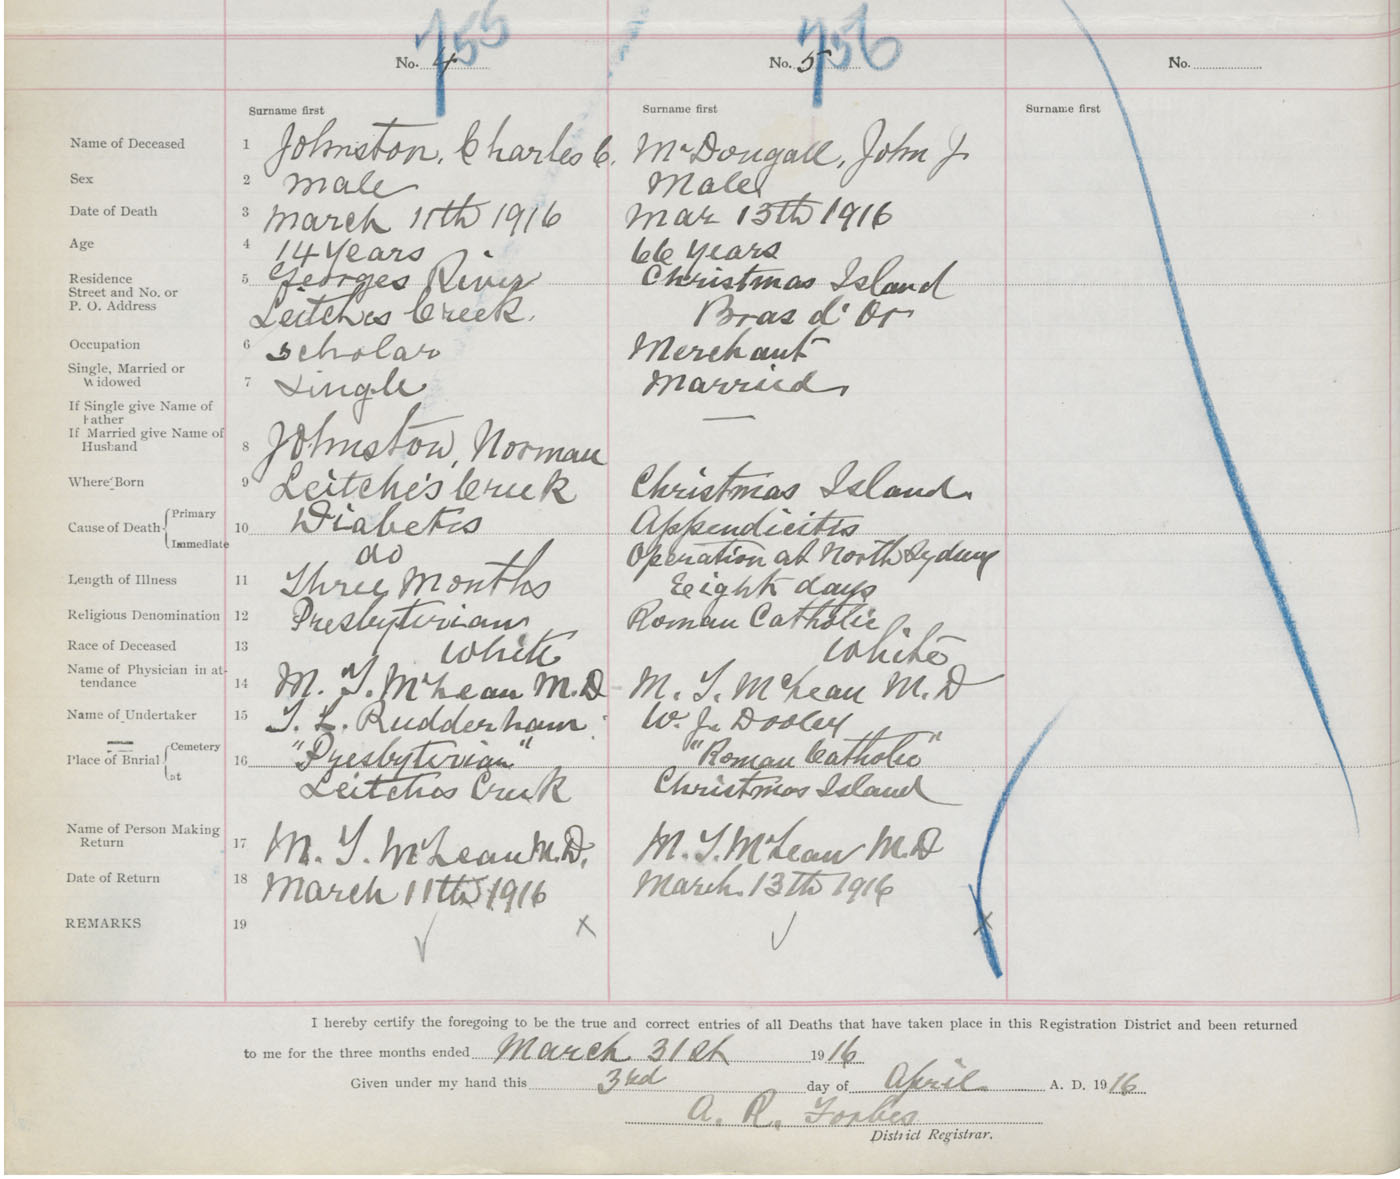 755 756
No. 4 No. 5 No.
Surname first Surname first Surname first
Name of Deceased 1 Johnston, Charles C. McDougall, John J
Sex 2 male Male
Date of Death 3 March 11th 1916 Mar 13th 1916
Age 4 14 Years 66 years
Residence 5 Georges River Christmas Island
Street and No. or
P. O. Address Leitches Creek. Bras d'Or
Occupation 6 Scholar Merchant
Single, Married or
Widowed 7 Single Married
If Single give Name of
Father —
If Married give Name of
Husband 8 Johnston, Norman
Where Born 9 Leitche's Creek Christmas Island.
Cause of Death Primary 10 Diabetis Appendicitis
Immediate do Operation at North Sydney
Length of Illness 11 Three Months Eeight days
Religious Denomination 12 Presbyterian Roman Catholic
Race of Deceased 13 White White
Name of Physician in at-
tendance 14 M. T. McLean M.D M. T. McLean M.D
Name of Undertaker 15 T. L. Rudderham W. J. Dooley
Place of Burial Cemetery 16 "Presbyterian" "Roman Catholic"
at Leitches Creek Christmas Island
Name of Person Making
Return 17 M. T. McLean M.D. M. T. McLean M.D
Date of Return 18 March 11th 1916 March. 13th 1916
REMARKS 19 ✓ x ✓ x
I hereby certify the foregoing to be the true and correct entries of all Deaths that have taken place in this Registration District and been returned
to me for the three months ended March 31st 1916
Given under my hand this 3rd day of April A. D. 1916
A. R. Forbes
District Registrar.